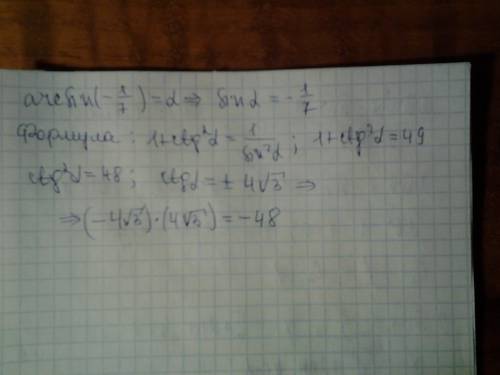 arcsin(-1/7)=α ⇒ sinα = -1/7
Формула: 1+ctg²α = 1/sin²α; 1+ctg²α=49
ctg²α=48; ctgα = ± 4√3 ⇒
⇒ (-4√3)·(4√3) = -48